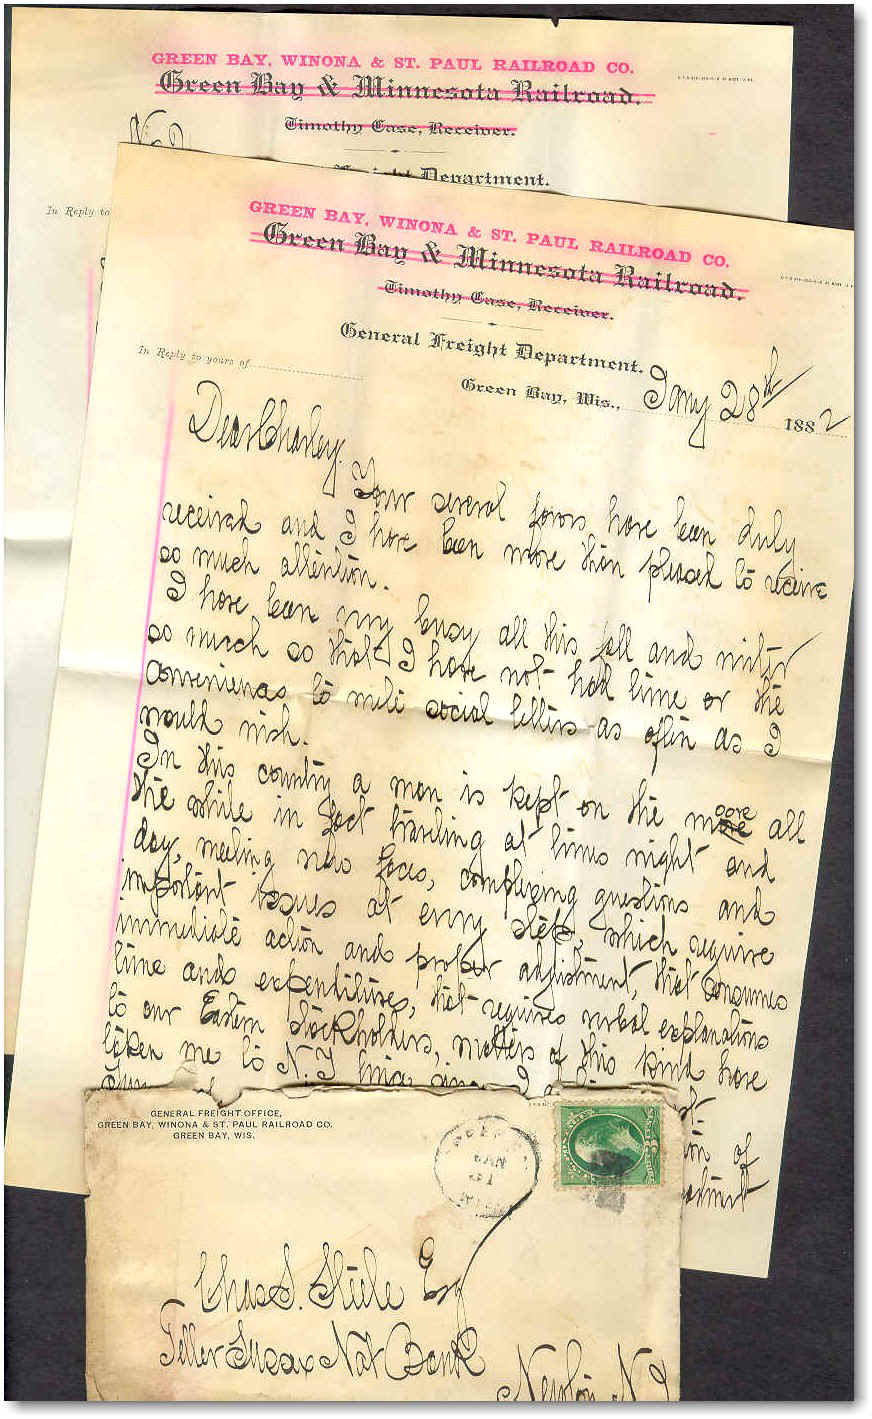 GREEN BAY, WINONA & ST. PAUL RAILROAD CO.
Green Bay & Minnesota Railroad.
Timothy Case, Receiver.
No 2
Freight Department.
In Reply to
GREEN BAY, WINONA & ST. PAUL RAILROAD CO.
Green Bay & Minnesota Railroad.
Timothy Case, Receiver.
General Freight Department.
In Reply to yours of
Green Bay, Wis., Jany 28th 1882
Dear Charley.
Your several favors have been duly
received and I have been more than pleased to receive
so much attention.
I have been very busy all this fall and winter
so much so that I have not had time or the
conveniences to write social letters as often as I
would wish.
In this country a man is kept on the move all
the while in fact traveling at times night and
day, meeting new faces, complexing questions and
important issues at every step, which require
immediate action and proper adjustment, that consumes
time and expenditures, that requires verbal explanations
to our Eastern Stockholders, matters of this kind have
taken me to N.Y.
of
GENERAL FREIGHT OFFICE,
GREEN BAY, WINONA & ST. PAUL RAILROAD CO.
GREEN BAY, WIS.
Chas S. Steele Esq
Teller Sussex Nat Bank
Newton N J